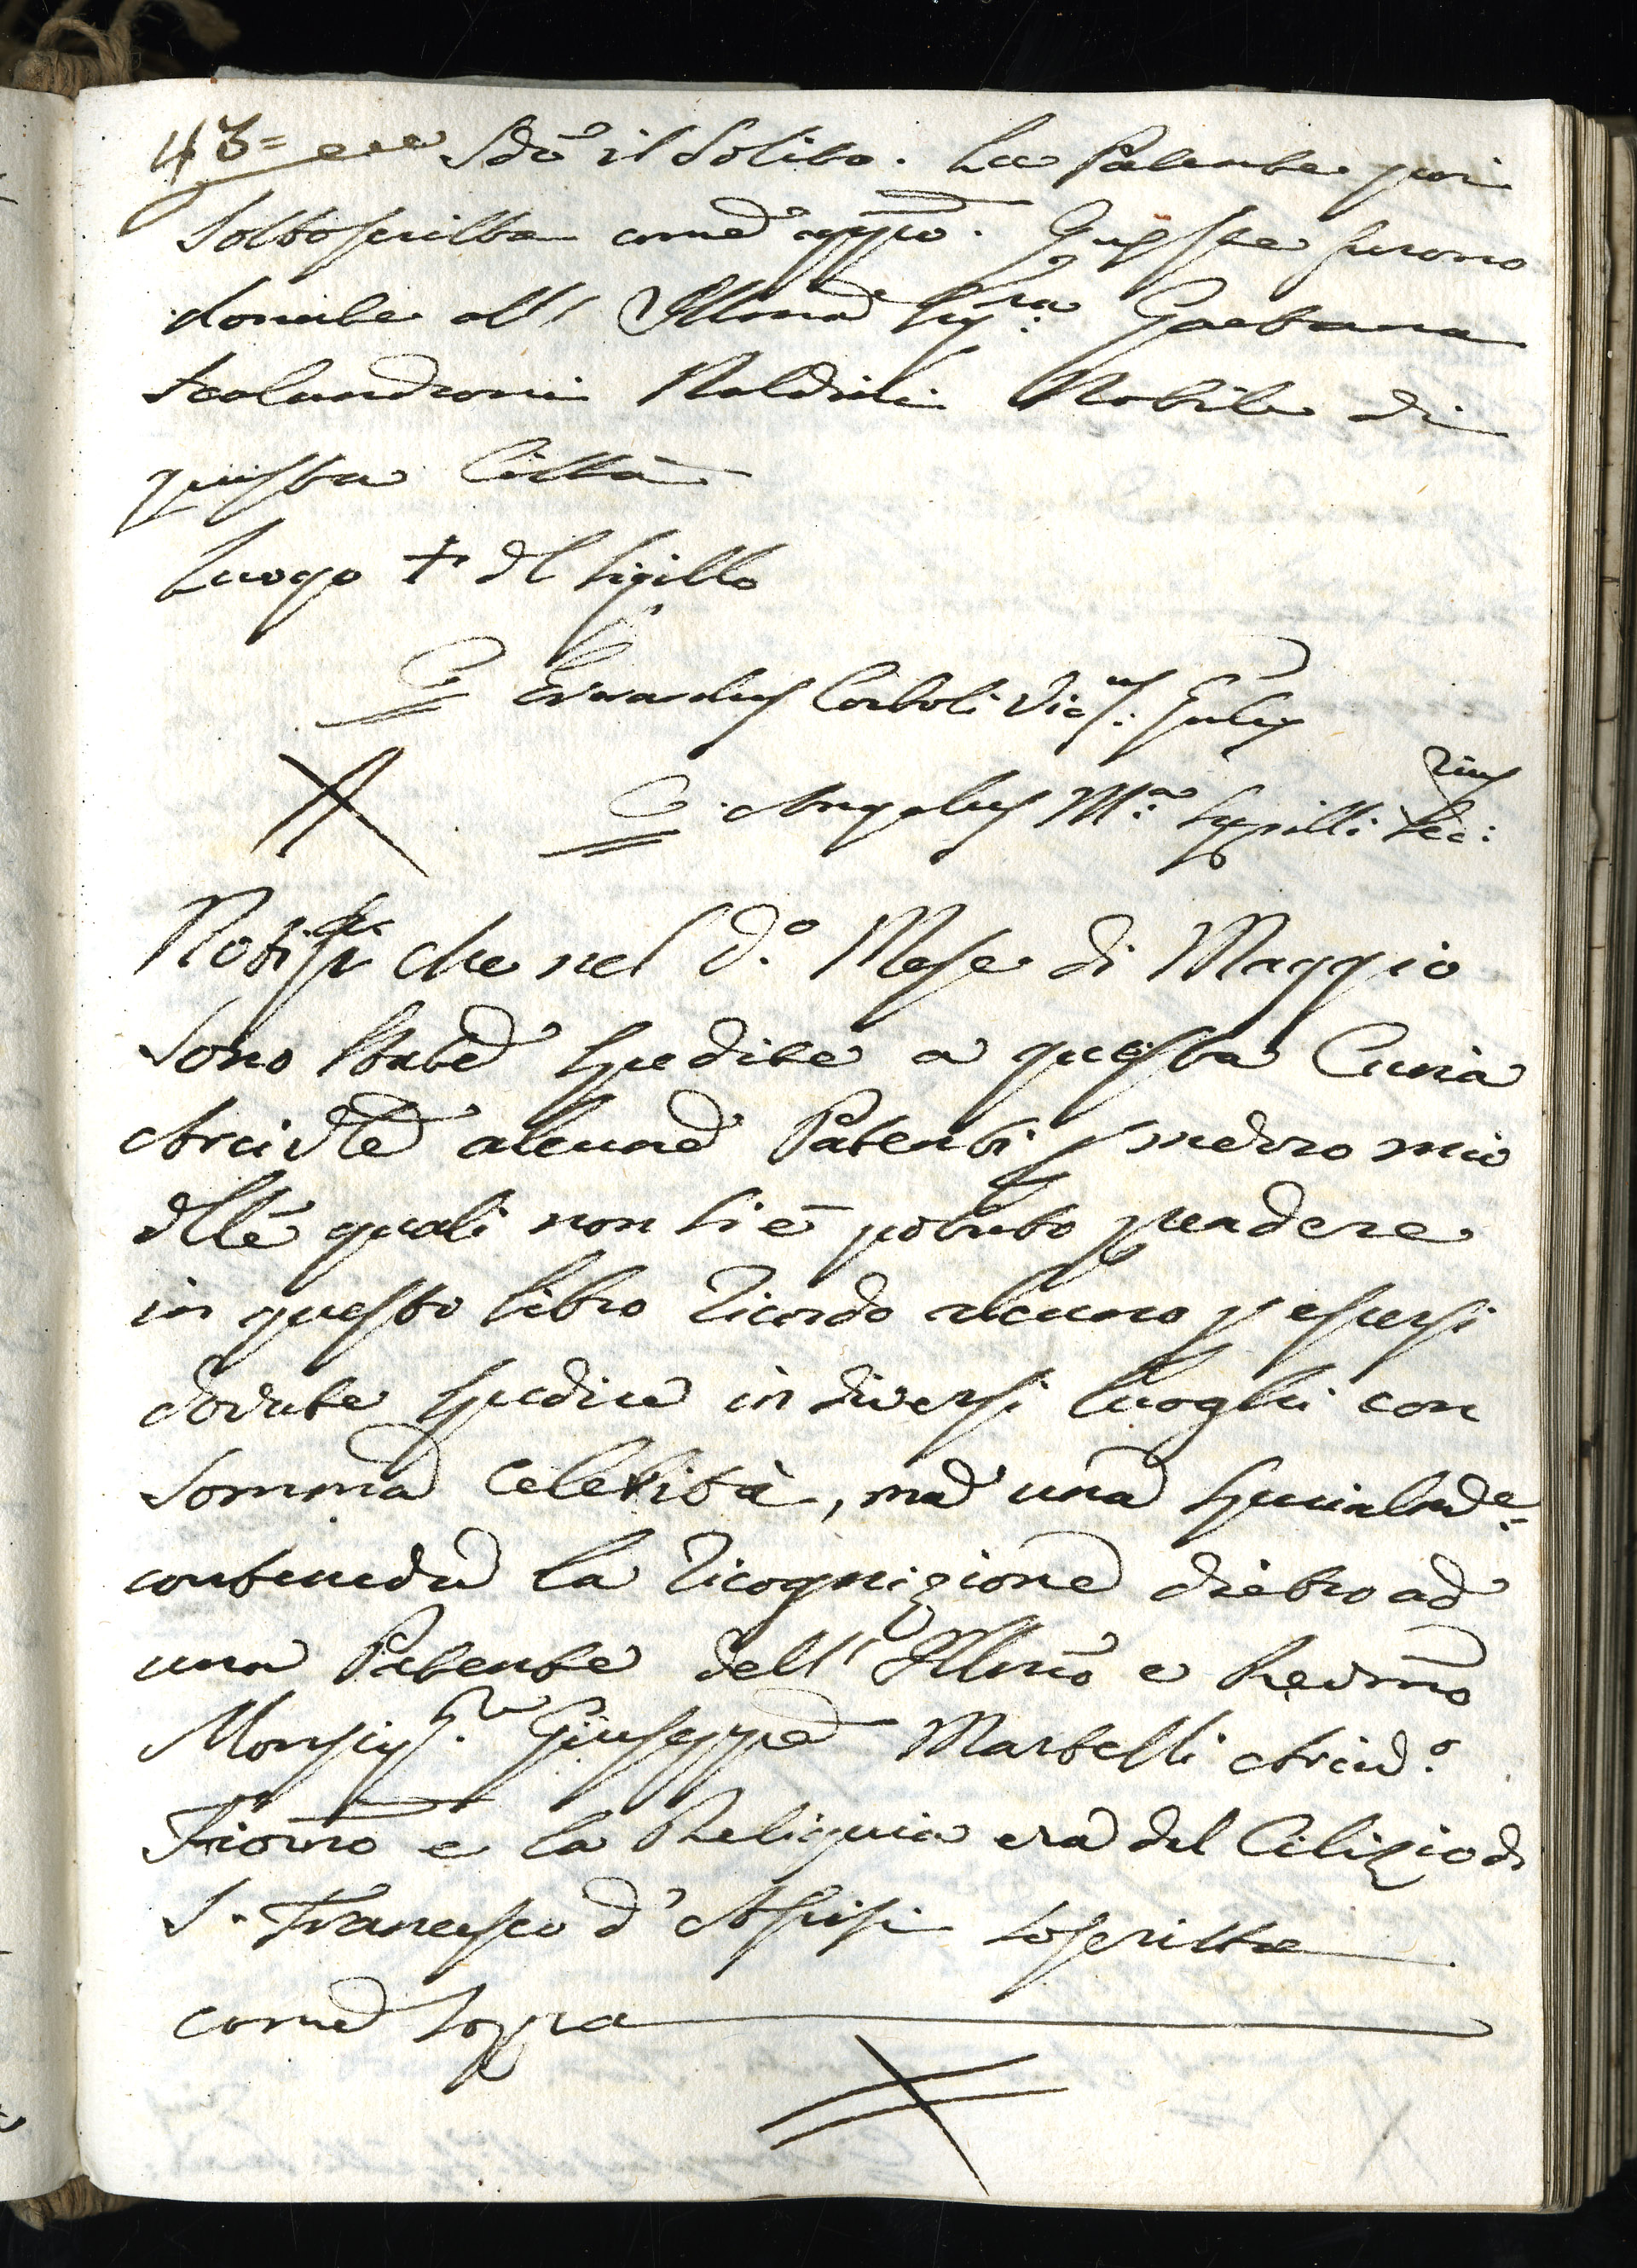 43= Sdo il Solito. La Patente poi
Sottoscritta come appo. Queste furono
donate all' Illma Sigra Gaetana
Scalandroni Naldini Nobile di
questa Città
Luogo + dl Sigillo
Corboli Vics: Gnlis
Angelus Ma: Secrius:
Notisi che nel do. Mese di Maggio
Sono State Spedite a questa Curia
Arcivle alcune Patenti p mezzo mio
dlle quali non si è potuto prendere
in questo libro ricordo alcuno p essersi
dovute Spedire in diversi luoghi con
Somma Celerità, ma una Specialme:
conteneva la ricognizione dietro ad
una Patente dell' Illmo e Revmo
Monsigre. Giuseppe Martelli Arcivo.
Fiorno e la Reliquia era del Cilizio di
S. Francesco d'Assisi soscritta
come Sopra